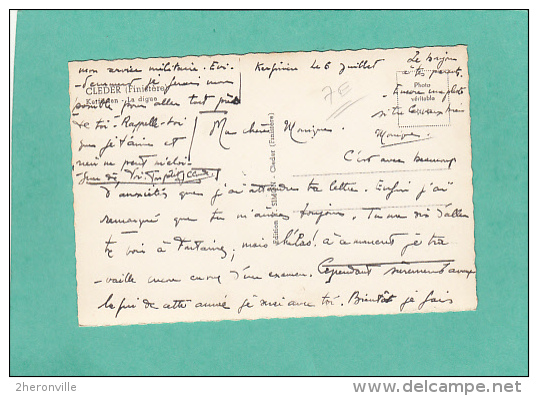 Kerfinien le 6 juillet
7E
Ma chère Monique
C'est avec beaucoup
d'anxiété que j'ai attendu ta lettre. Enfin j'ai
remarqué que tu m'aimes toujours. Tu me dis d'aller
te voir à Fontaine, mais hélas! à ce moment je tra
-vaille encore en vue d'un examen. Cependant sûrement avant
la fin de cette année je serai avec toi. Bientôt je fais
mon service militaire. Évi-
-demment je ferai mon
possible pour aller tout près
de toi. Rappelle-toi
que je t'aime et
rien ne peut
Le bonjour
à tes parents.
Encore une photo
si tu veux bien
Monique.
CLEDER (Finistère)
Kerfissien - La digue
Édition SIMON - Cleder (Finistère)
Photo
véritable
2heronville
www.delcampe.net